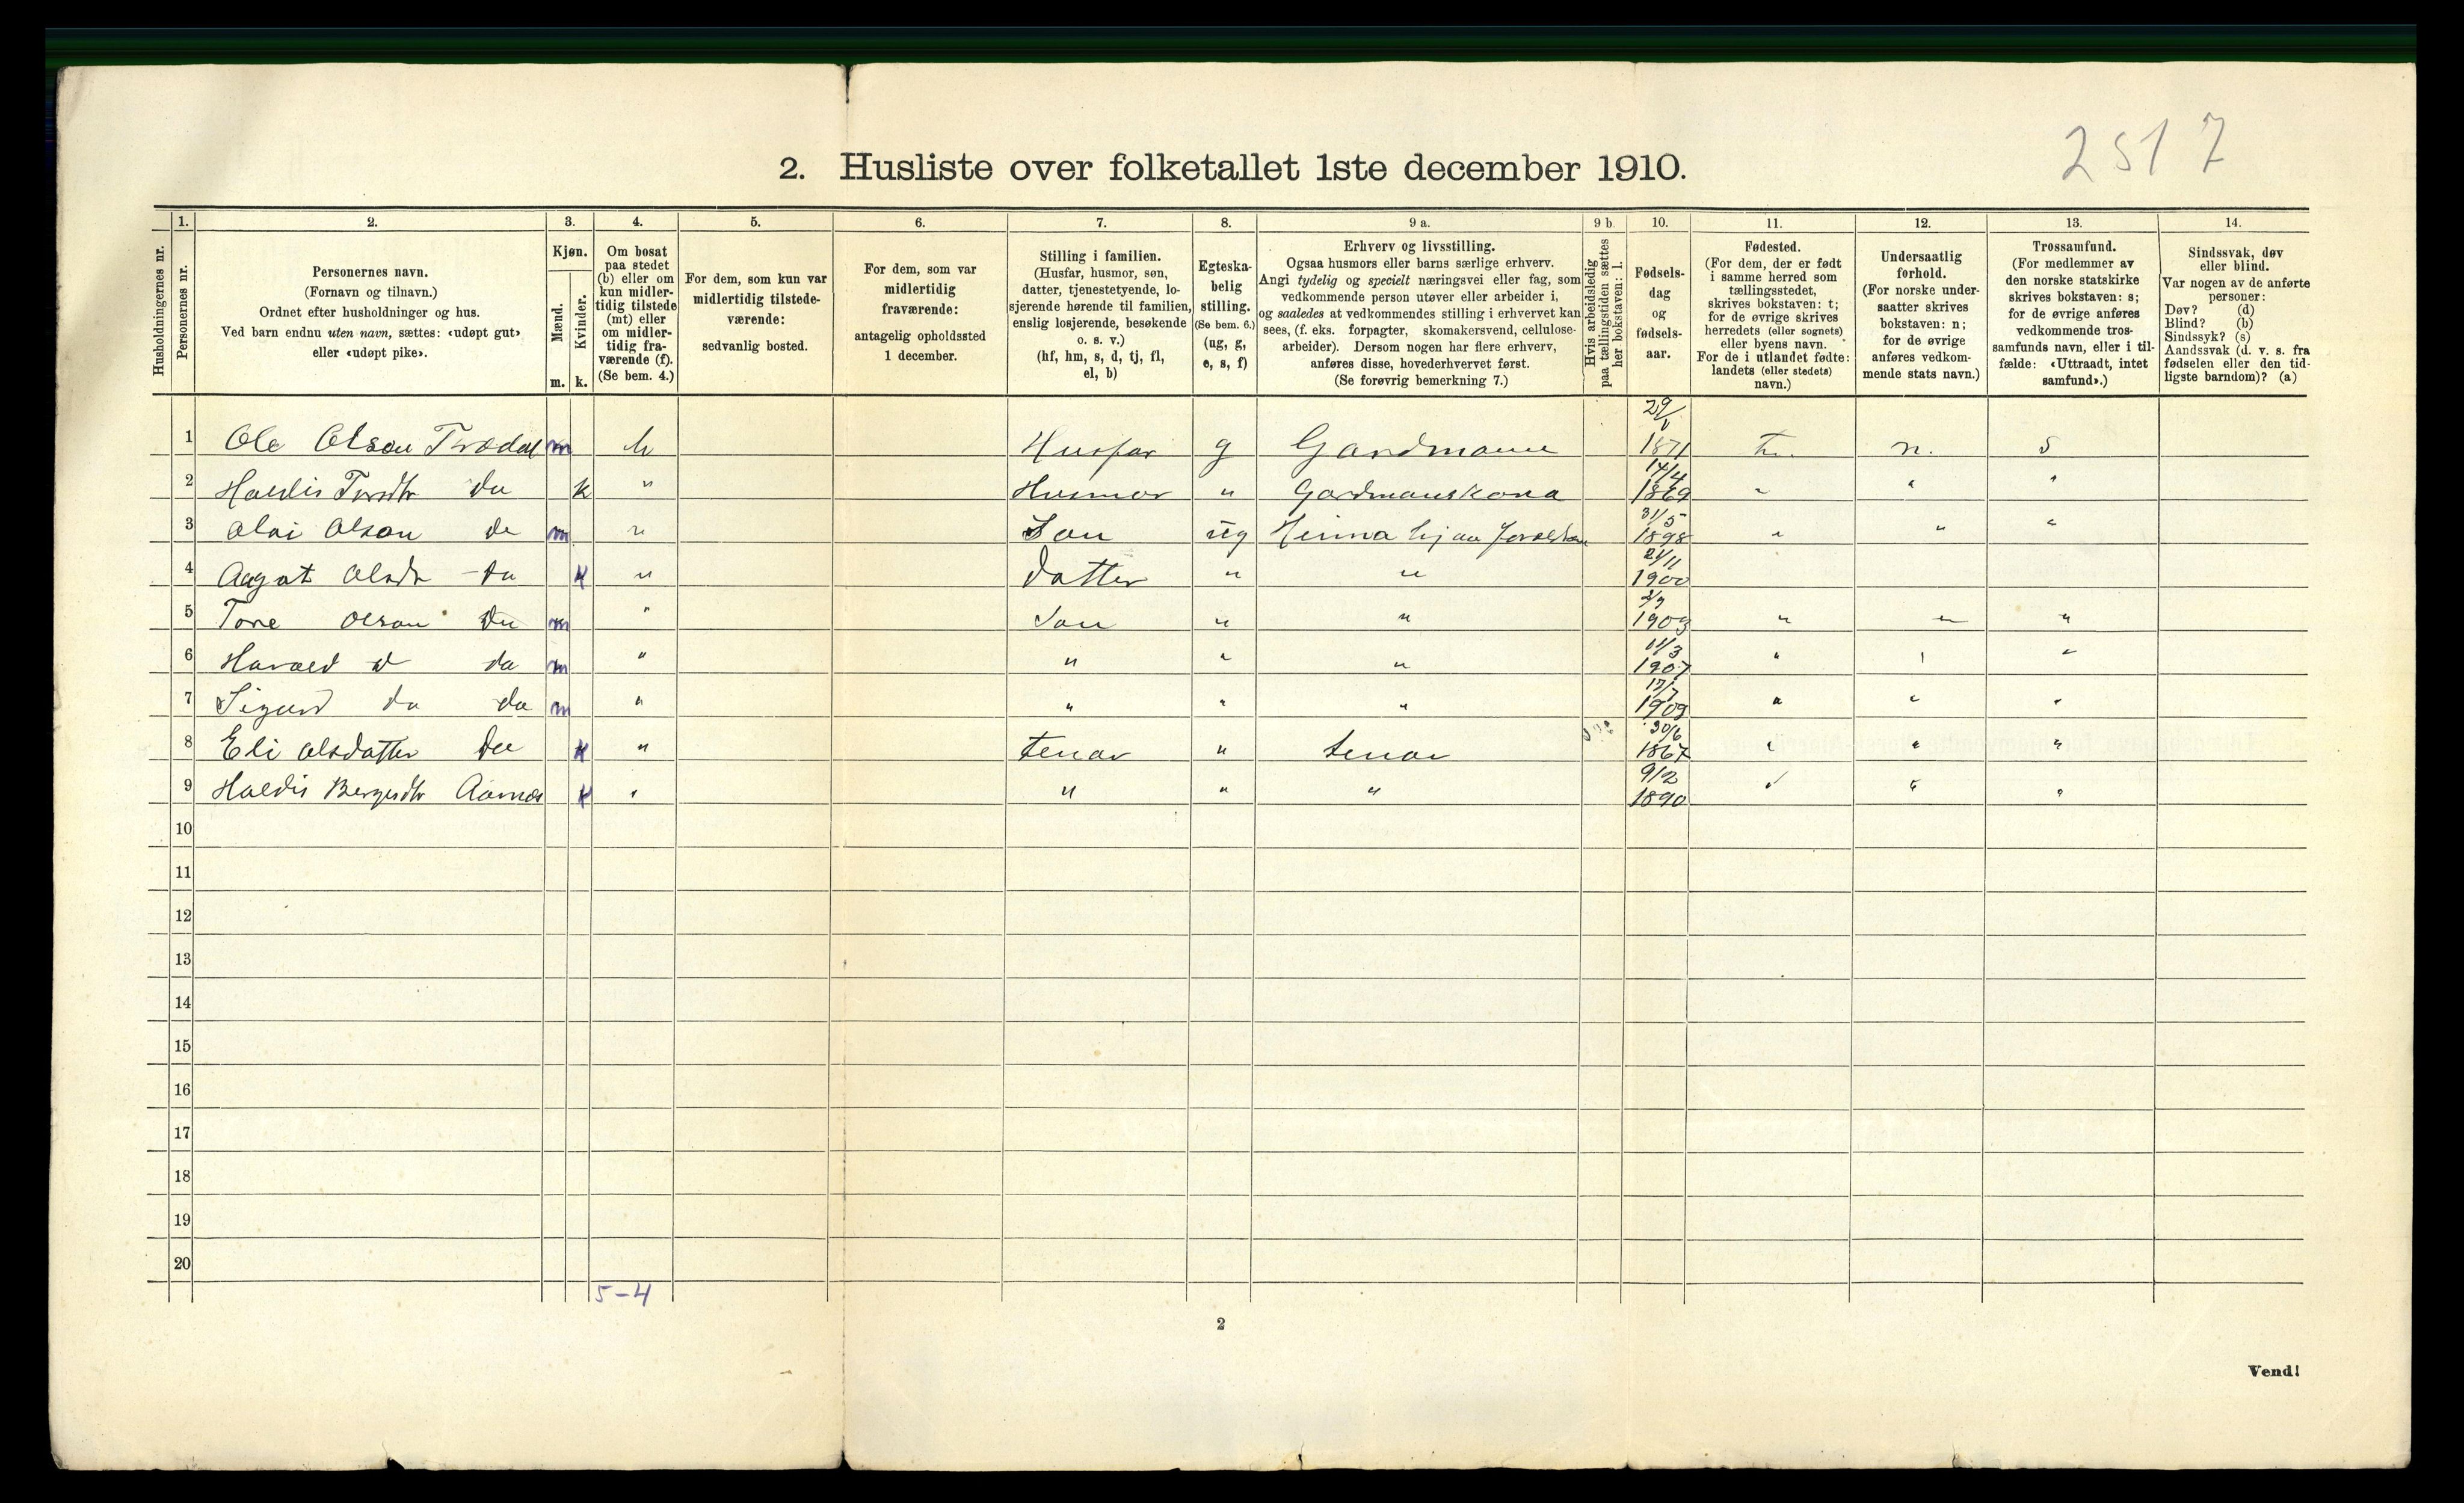 2517
2. Husliste over folketallet 1ste december 1910.
Husholdningernes nr.
1.
Personernes nr.
2.
Personernes navn.
(Fornavn og tilnavn.)
Ordnet efter husholdninger og hus.
Ved barn endnu uten navn, sættes: «udøpt gut»
eller «udøpt pike».
3.
Kjøn.
Mænd.
Kvinder.
m.
k.
4.
Om bosat
paa stedet
(b) eller om
kun midler-
tidig tilstede
(mt) eller
om midler-
tidig fra-
værende (f).
(Se bem. 4.)
5.
For dem, som kun var
midlertidig tilstede-
værende:
sedvanlig bosted.
6.
For dem, som var
midlertidig
fraværende:
antagelig opholdssted
1 december.
7.
Stilling i familien.
(Husfar, husmor, søn,
datter, tjenestetyende, lo-
sjerende hørende til familien,
enslig losjerende, besøkende
o. s. v.)
(hf, hm, s, d, tj, fl,
el, b)
8.
Egteska-
belig
stilling.
(Se bem. 6.)
(ug, g,
e, s, f)
9 a.
Erhverv og livsstilling.
Ogsaa husmors eller barns særlige erhverv.
Angi tydelig og specielt næringsvei eller fag, som
vedkommende person utøver eller arbeider i,
og saaledes at vedkommendes stilling i erhvervet kan
sees, (f. eks. forpagter, skomakersvend, cellulose-
arbeider). Dersom nogen har flere erhverv,
anføres disse, hovederhvervet først.
(Se forøvrig bemerkning 7.)
9 b.
Hvis arbeidsledig
paa tællingstiden sættes
her bokstaven: l.
10.
Fødsels-
dag
og
fødsels-
aar.
11.
Fødested.
(For dem, der er født
i samme herred som
tællingsstedet,
skrives bokstaven: t;
for de øvrige skrives
herredets (eller sognets)
eller byens navn.
For de i utlandet fødte:
landets (eller stedets)
navn.)
12.
Undersaatlig
forhold.
(For norske under-
saatter skrives
bokstaven: n;
for de øvrige
anføres vedkom-
mende stats navn.)
13.
Trossamfund.
(For medlemmer av
den norske statskirke
skrives bokstaven: s;
for de øvrige anføres
vedkommende tros-
samfunds navn, eller i til-
fælde: «Uttraadt, intet
samfund».)
14.
Sindssvak, døv
eller blind.
Var nogen av de anførte
personer:
Døv? (d)
Blind? (b)
Sindssyk? (s)
Aandssvak (d. v. s. fra
fødselen eller den tid-
ligste barndom)? (a)
1 Ole Olson Trædal m b Husfar g Gardmann 1871 t. n. s
2 Haldis Torsdtr do k " Husmor " Gardmanskona 14/4 1869 " " "
3 Olai Olson do m " Son ug Heima hjaa 31/5 1898 " " "
4 Aagot Olsdr do k " Datter " " 21/11 1900
5 Tore Olson do m " Son " " 1903 " " "
6 Harald do m " " " " 11/3 1907 " "
7 Sigurd do do m " " " " 1909 " " "
8 Eli Olsdatter do k " tenar " tenar 30/6 1867 " " "
9 Haldis Bergesdtr k " " " " 9/2 1890 " " "
10
11
12
13
14
15
16
17
18
19
20
5-4
2
Vend!